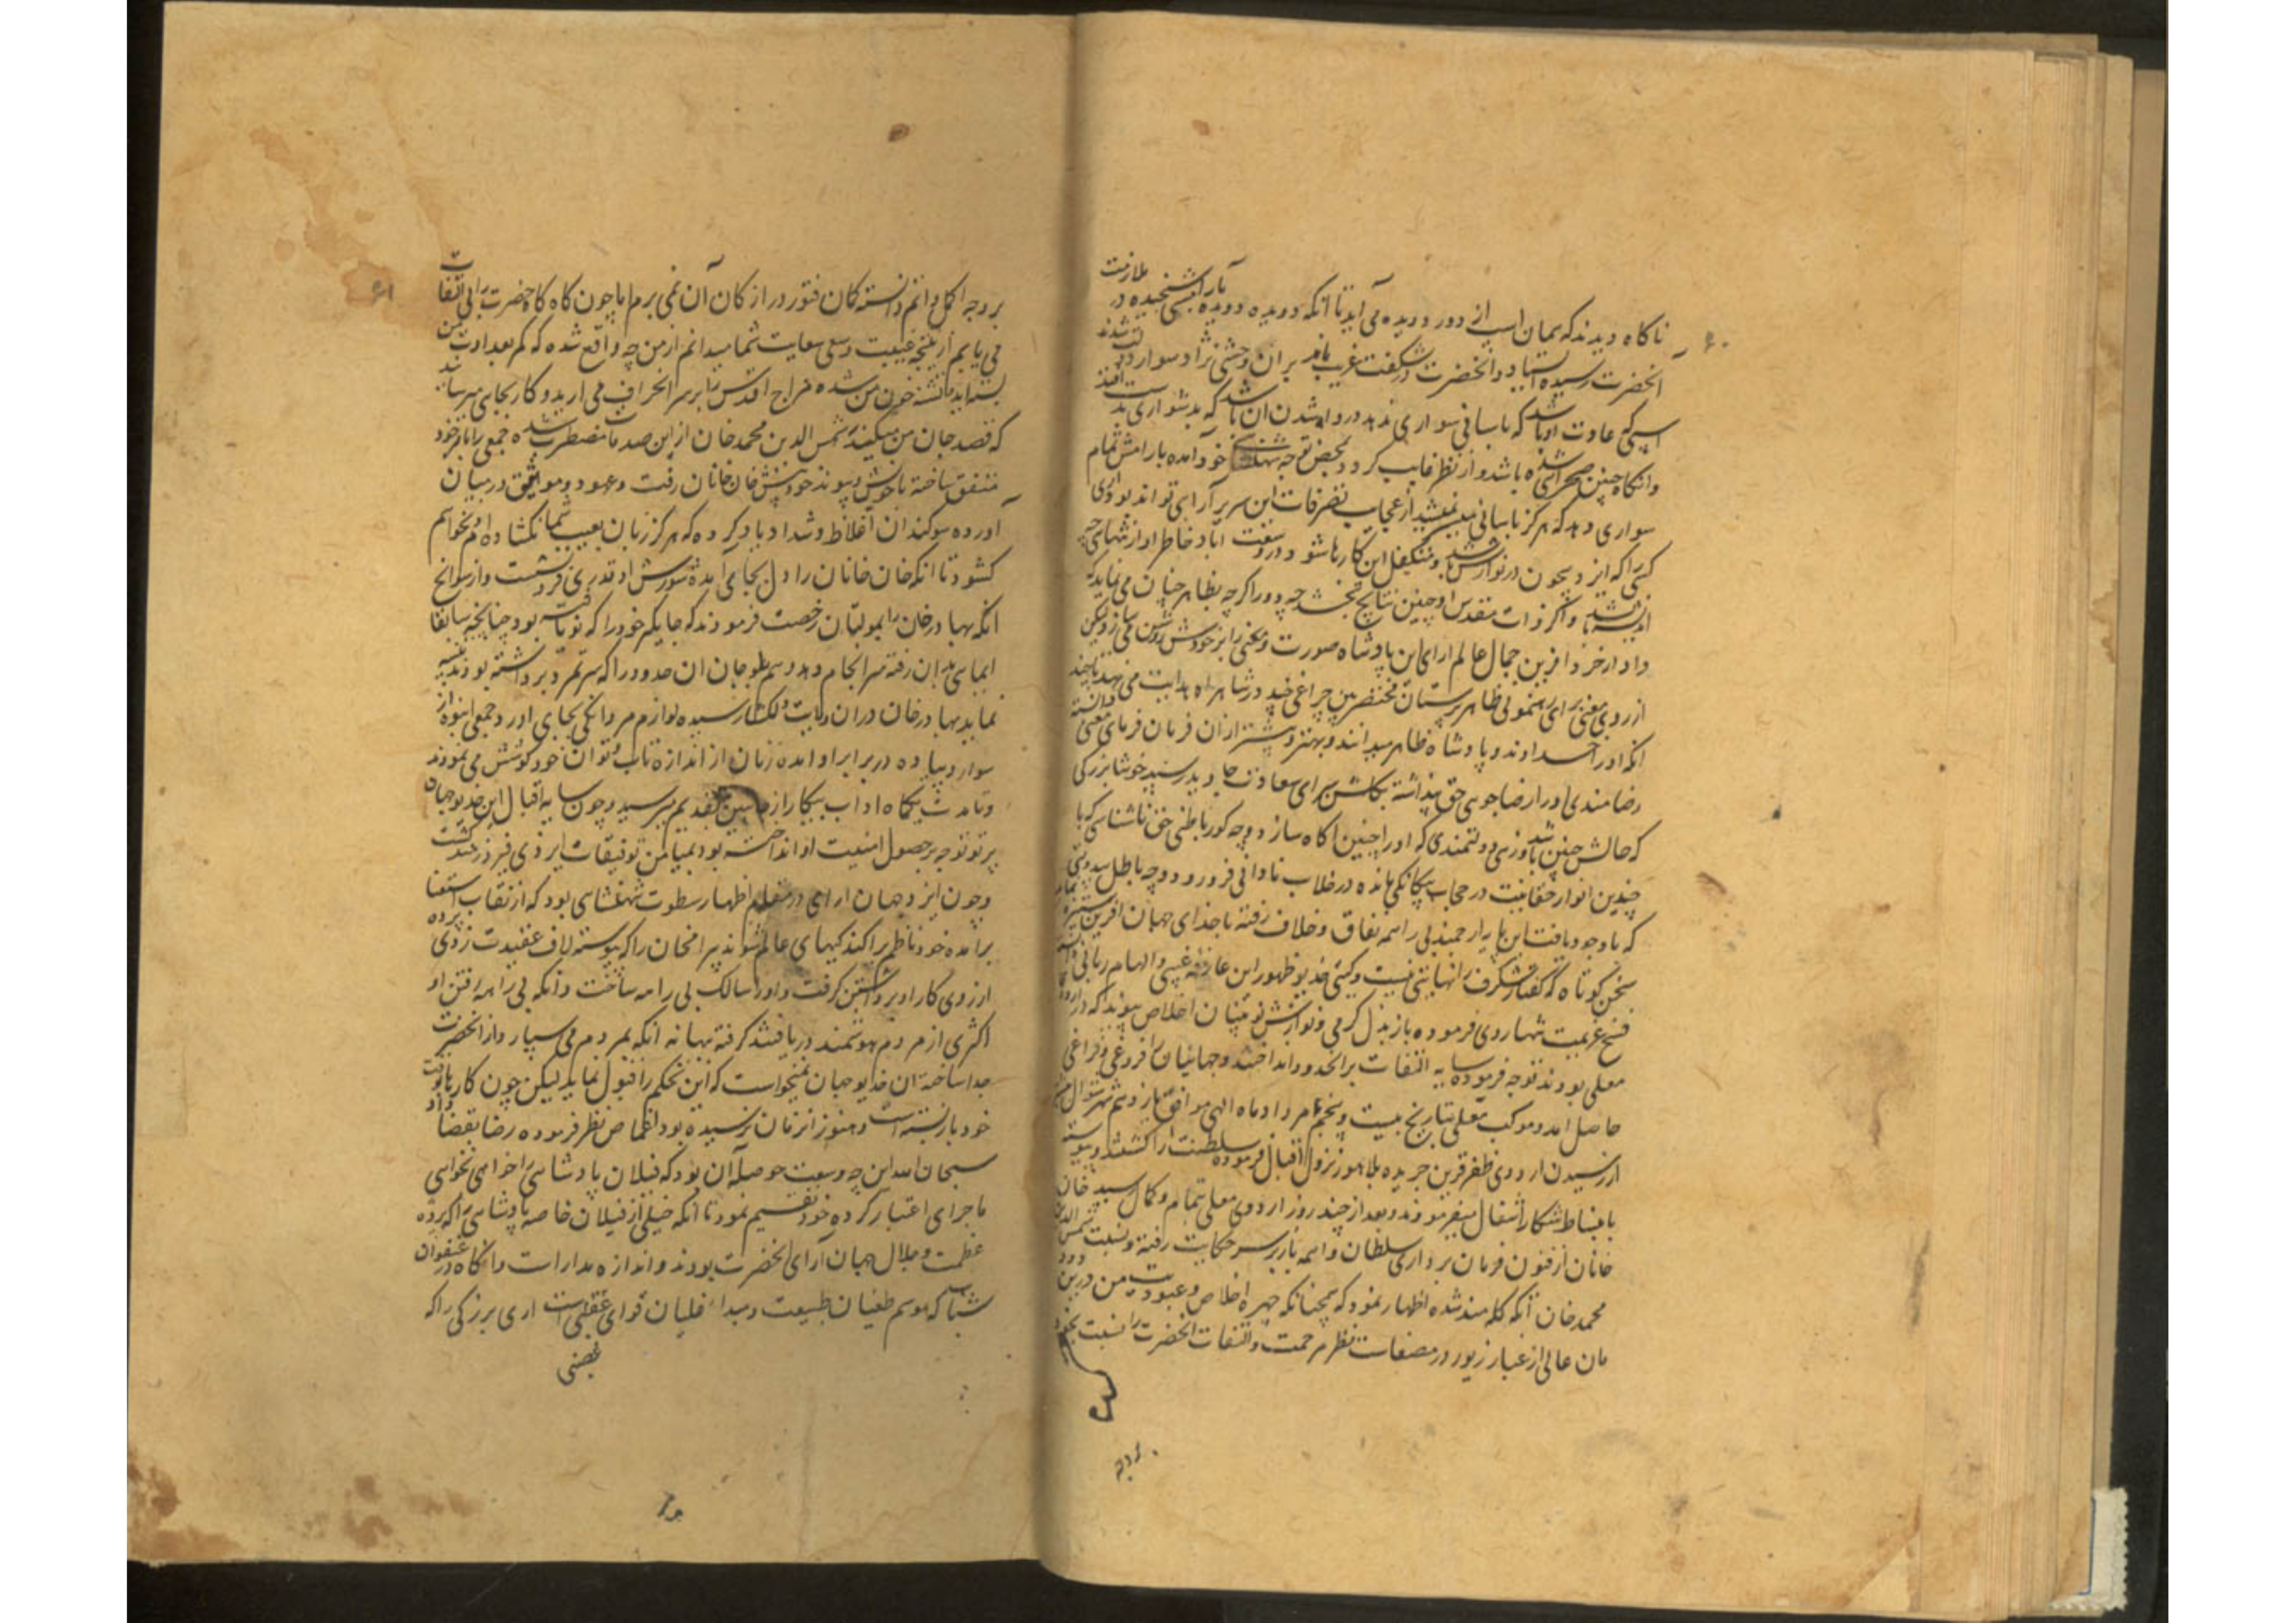 ۶۰
ناکاه دیدند که همان اسپ از دور دویده می آید تا آنکه دویده دویده بآرامش سنجیده در ملازمت
آنحضرت رسیده ایستاد و آنحضرت در شکفت غریب مانده بران وحشی نژاد سوار دولت شدند
اسپی که عادت او باشد که باسانی سواری ندهد و رها شدن آن باشد که بدشواری بدست افتد
وانکاه چنین صحرائی شده باشد و از نظر غایب کردد بمحض توجه شهنشاهی خود آمده بارامش تمام
سواری دهد که هرکز باسانی میسر نمیشد از عجایب تصرفات این سریر آرای تواند بود آری
کسی را که ایزد بیچون در نوازش باشد و متکفل این کارها شود در وسعت آباد خاطر او از تنهائی چه
اندیشه باشد و اکر ذات مقدس او چنین نتایج بخشد چه دور اکرچه بظاهر چنان می نماید که
دادار خرد آفرین جمال عالم ارای این پادشاه صورت و معنی را بر خودش روشن می سازد لیکن
از روی معنی برای رهنمونی ظاهر پرستان مختصر بین چراغی چند در شاهراه هدایت می نهد تا چند
انکه او را خداوند و پادشاه ظاهر میدانند بهتر و بیشتر ازان فرمان فرمای معنی دانسته
رضامندی او را رضاجوئی حق پنداشته بکلشن سرای سعادت جاوید رسند خوشا بزرکی
که حالش چنین باشد و زهی دولتمندی که او را چنین آکاه سازد و چه کور باطنی حق ناشناسی که با
چندین انوار حقانیت در حجاب بیکانکی مانده در خلاب نادانی فرو رود و چه باطل بیدولتی
که با وجود یافت این پایه ارجمند بی راهه نفاق و خلاف رفته با خدای جهان آفرین ستیزه نماید
سخن کوتاه که کفتار شکرف را نهایتی نیست و کیتی خدیو ظهور این عارفه غیبی و الهام ربانی
فسخ عزیمت تنها روی فرموده باز بذل کرمی و نوازش نوئینان اخلاص پیوند که در اردوی
معلی بودند توجه فرموده سایه التفات بران حدود انداختند و جهانیان را فروغی و فراغی
حاصل آمد و موکب معلی بتاریخ بیست و پنجم مرداد ماه الهی موافق یازدهم شهر شوال
از رسیدن اردوی ظفر قرین جریده بلاهور نزول اقبال فرموده سلطنت آرا کشتند و پیوسته
بانبساط شکار اشتغال میفرمودند و بعد از چند روز اردوی معلی بتمام و کمال رسید خان
خانان از فنون فرمان برداری سلطان واهمه باز بر سر حکایت رفته و نسبت شمس الدین
محمد خان اتکه کله مند شده اظهار نمود که همچنانکه چهره اخلاص و عبودیت من درین
مان عالی از غبار زیور در مضعات نظر مرحمت و التفات آنحضرت را نسبت بخود
بروجه
۶۱
بروجه اکمل دانم دانسته کان فتور در ارکان آن نمی برم اما چون کاه کاه حضرت را بی التفات
می یابم از نتیجه غیبت و سعی سعایت شما میدانم از من چه واقع شده که کمر بعداوت من
بسته اید و تشنه خون من شده مزاج اقدس را بر سر انحراف می ارید و کار بجائی میرسانید
که قصد جان من میکنید شمس الدین محمد خان از این صدمات مضطرب شده جمعی را با خود
متفق ساخته با خویش و پیوند خود پیش خان خانان رفت و عهود و مواثیق در میان
آورده سوکندان اغلاظ و شداد یاد کرده که هرکز زبان بعیب شما نکشاده ام و نخواهم
کشود تا انکه خان خانان را دل بجا آمده شورش او قدری فرو نشست و از سوانح
انکه بهادر خان را بمولتان رخصت فرمودند که جایکیر خود را که نو یافته بود چنانچه سابقا
ایمایی بدان رفته سرانجام دهد و هم بلوچان ان حدود را که سر تمرد برداشته بودند تنبیه
نماید بهادر خان دران ولایت دلکشا رسیده لوازم مردانکی بجای اورد و جمعی انبوه از
سوار و پیاده در برابر او امده زمان از اندازه تاب و توان خود کوشش می نمودند
و تا مدت یکماه اداب پیکار از جانبین بتقدیم میرسید و چون سایه اقبال این خدیو جهان
پرتو توجه بر حصول امنیت او انداخته بود بمیامن توفیقات ایزدی فیروزمند کشت
و چون ایزد جهان ارای در مقام اظهار سطوت شهنشاهی بود که از نقاب استغنا
برآمده خود ناظم پراکندکیهای عالم شوند بیرام خان را که پیوسته لاف عقیدت زدی پرده
از روی کار او برداشتن کرفت و او را سالک بی راهه ساخت و انکه بی راهه رفتن او
اکثری از مردم هوشمند دریافتند کرفته بهانه انکه بمردم می سپارد از آنحضرت
جدا ساخته ان خدیو جهان نمیخواست که این تحکم را قبول نماید لیکن چون کارها بوقت
خود باز بسته است و هنوز انزمان نرسیده بود اغماض نظر فرموده رضا بقضا داد
سبحان الله این چه وسعت حوصله آن بود که فیلان پادشاهی را خواهی نخواهی
ماجرای اعتبار کرده خود تقسیم نمود تا آنکه خیلی از فیلان خاصه پادشاهی را که پرده
عظمت و جلال جهان آرای آنحضرت بودند و اندازه مدارات و انکاه در عنفوان
شباب که موسم طغیان طبیعت و مبداء غلیان قوای غضبی است اری بزرکی را که
غضبی